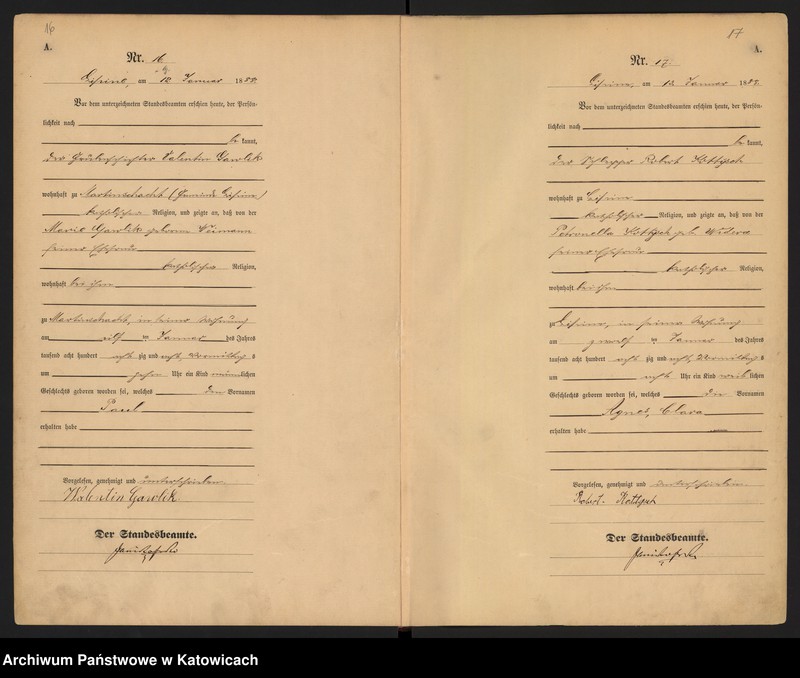 16
A.
Nr. 16
am 12 Januar 188
Vor dem unterzeichneten Standesbeamten erschien heute, der Persön-
lichkeit nach
be kannt,
der Valentin Gawlik
wohnhaft zu Martinschacht (Gemeinde
katholischer Religion, und zeigte an, daß von der
Marie Gawlik geborene Neimann
seiner Ehefrau
katholischer Religion,
wohnhaft bei ihm
zu Martinschacht, in seiner Wohnung
am elf ten Januar des Jahres
tausend acht hundert acht zig und acht, Vormittags
um zehn Uhr ein Kind männlichen
Geschlechts geboren worden sei, welches den Vornamen
Paul
erhalten habe
Vorgelesen, genehmigt und unterschrieben
Valentin Gawlik
Der Standesbeamte.
17
A.
Nr. 17
am 12 Januar 188
Vor dem unterzeichneten Standesbeamten erschien heute, der Persön-
lichkeit nach
be kannt,
der Schlepper Robert
wohnhaft zu
katholischer Religion, und zeigte an, daß von der
Petronella geb.
seiner Ehefrau
katholischer Religion,
wohnhaft bei ihm
zu in seiner Wohnung
am zwölf ten Januar des Jahres
tausend acht hundert acht zig und acht, Vormittags
um acht Uhr ein Kind weiblichen
Geschlechts geboren worden sei, welches den Vornamen
Agnes, Clara
erhalten habe
Vorgelesen, genehmigt und unterschrieben
Robert
Der Standesbeamte.
Archiwum Państwowe w Katowicach